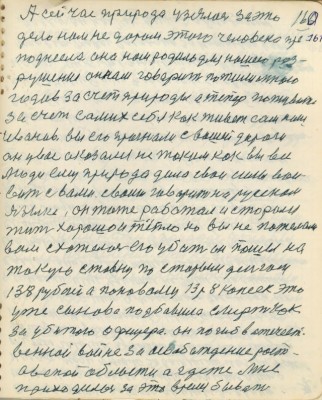 А сейчас природа взялась за это 160
дело нам не даром этого человека пре 161
поднесла она нам родила для нашего раз-
рушения он нам говорит пожили много
годив за счет природы а теперь поживите
за счет самих себя как живет сам наш
Иванов вы его прогнали с вашей дороги
он у вас оказался не таким как вы все
люди ему природа дала свои силы
вит с вами своими говорит на русском
языке, он тоже работал и старался
жить хорошо и тепло но вы не пожелали
вам схотелося его убить он пошел на
такую ставку по старым деньгам
138 рублей а по новому 13р 8 копеек это
уже сынова подбавила смерть как
за убитого офицера. он погиб в отечест-
венной войне за освобождение рост-
овской области а где те мне
приходилось за это время бывать